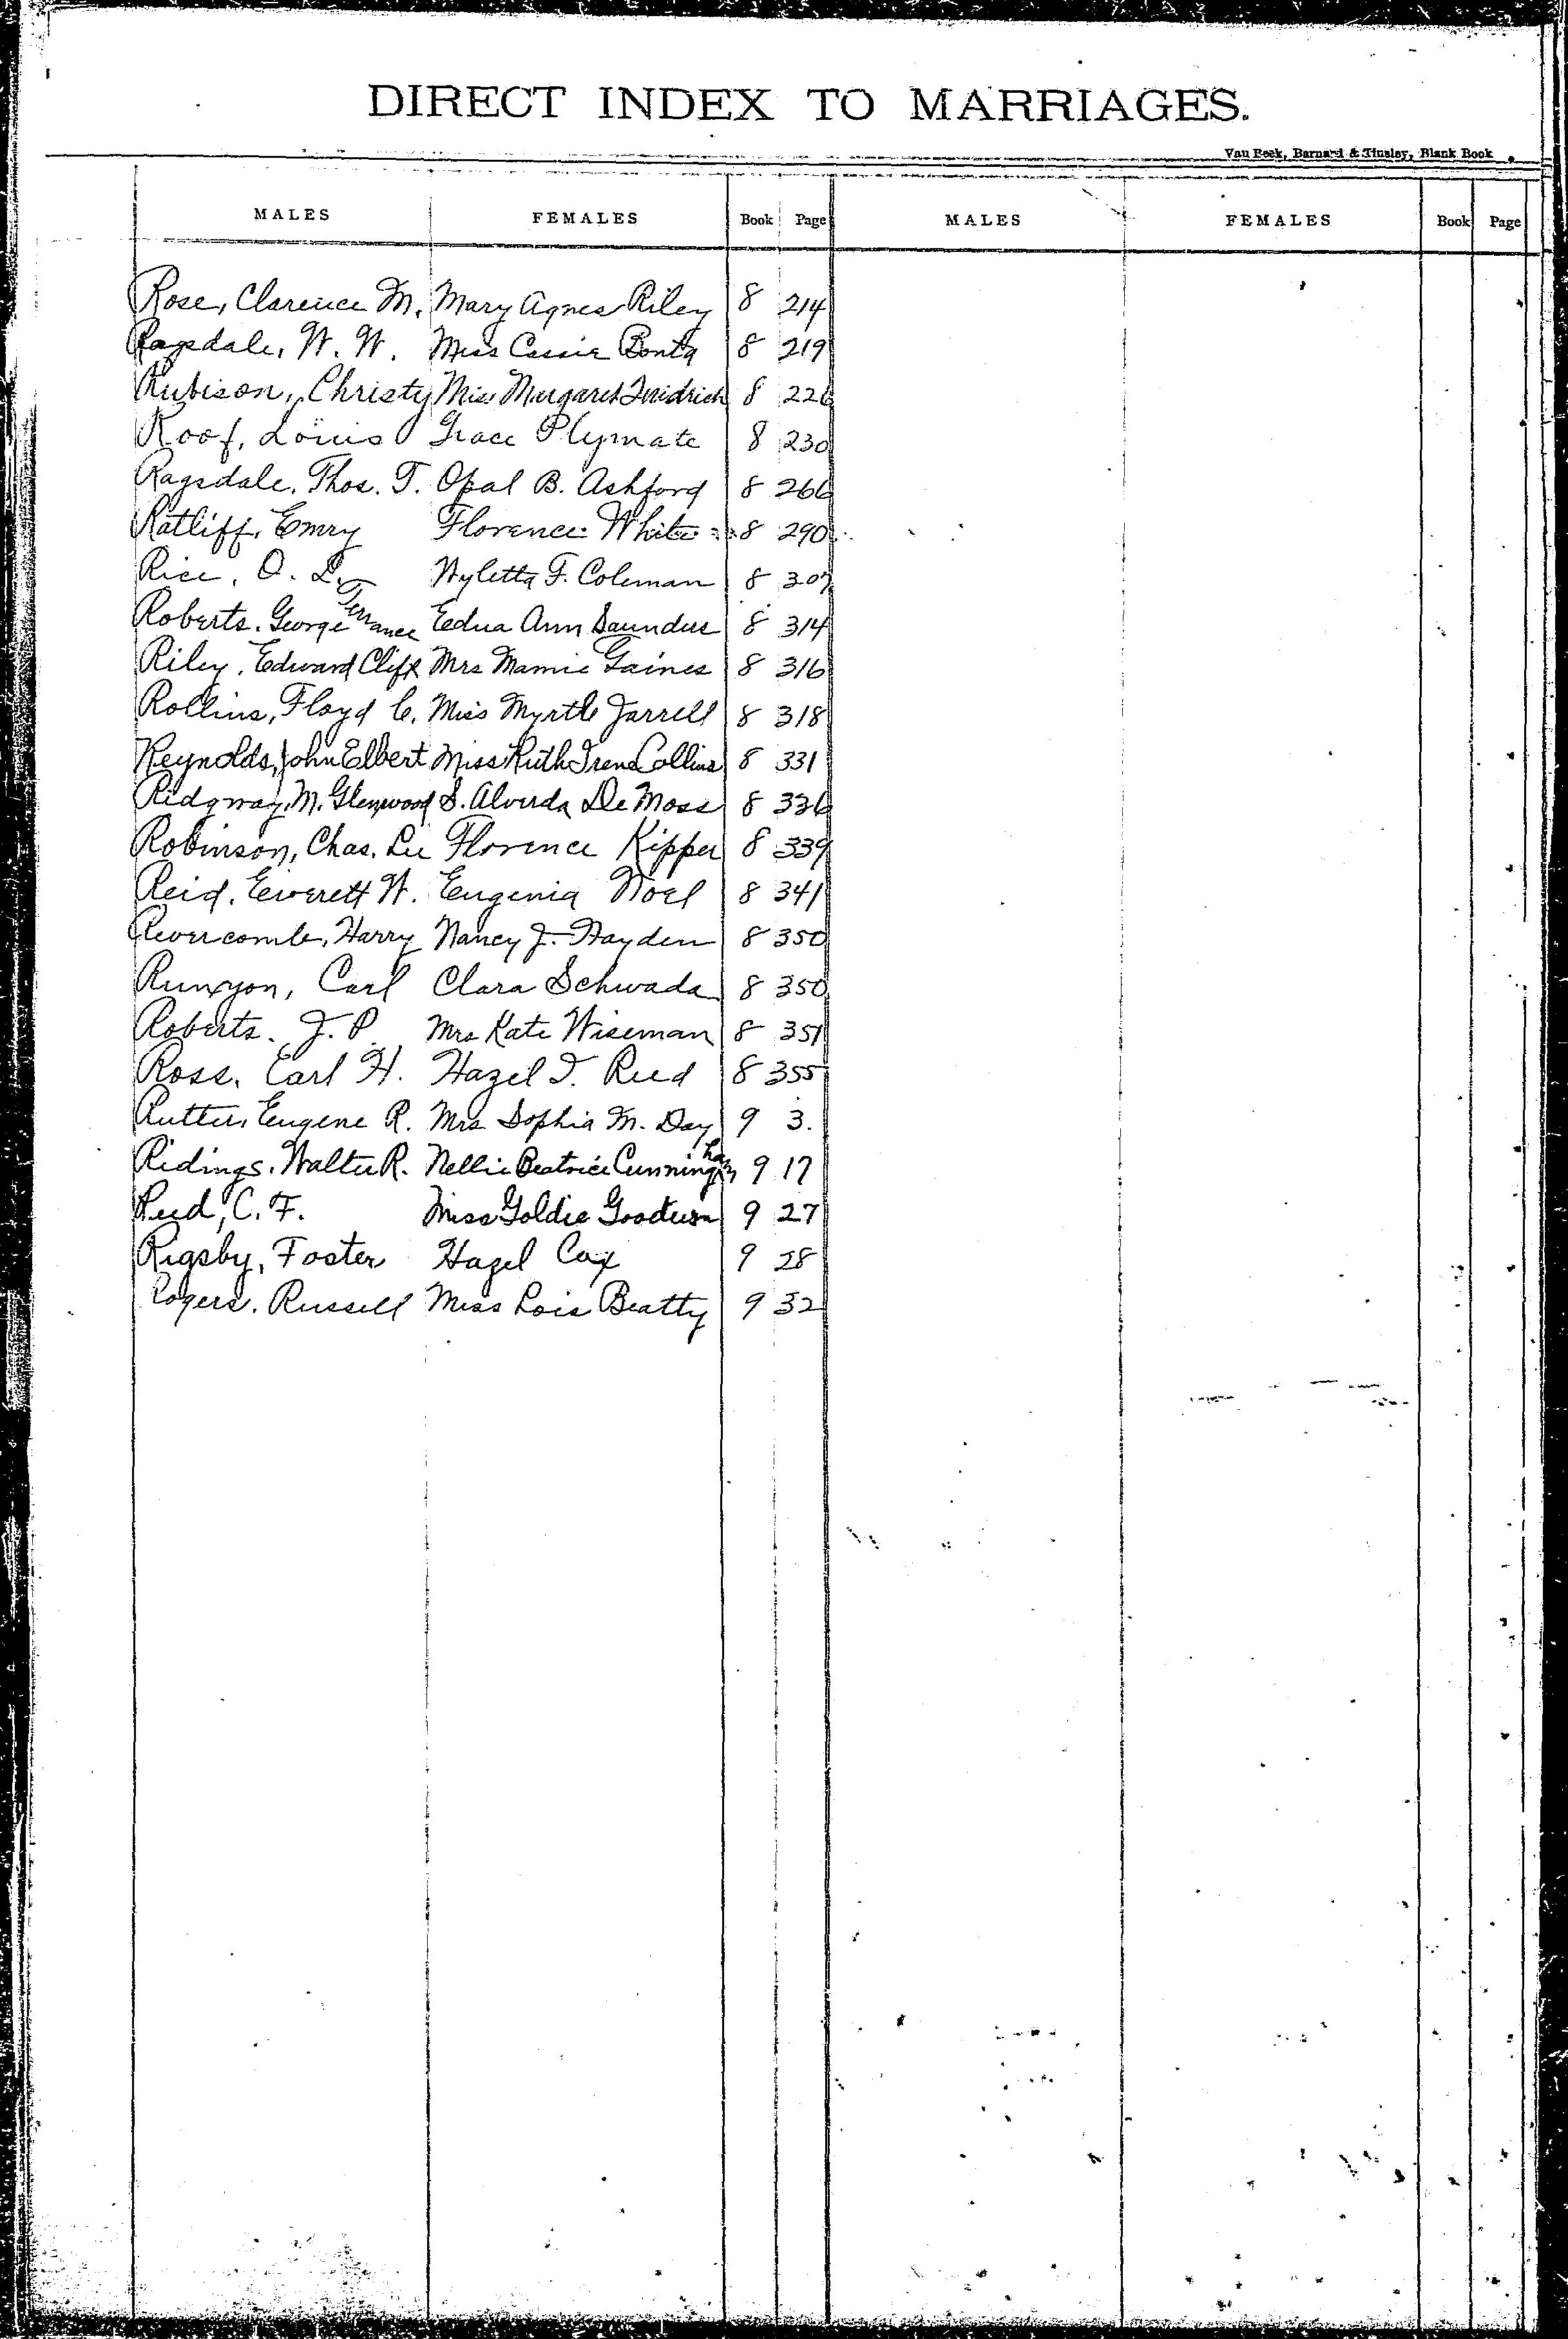 DIRECT INDEX TO MARRIAGES.
Van Beek, Barnard & Tinsley, Blank Book
MALES FEMALES Book Page MALES FEMALES Book Page
Rose, Clarence M. Mary Agnes Riley 8 214
Ragsdale, W. W. Miss Cassie Bonta 8 219
Rubison, Christy Miss Margaret 8 226
Roof, Louis Grace Plymate 8 230
Ragsdale, Thos. T. Opal B. Ashford 8 266
Ratliff, Emry Florence White 8 290
Rice, O. L. Wyletta F. Coleman 8 307
Roberts, George Terrance Edna Ann Saunders 8 314
Riley, Edward Clift Mrs Mamie Gaines 8 316
Rollins, Floyd C. Miss Myrtle Jarrell 8 318
Reynolds, John Elbert Miss Ruth Irene Collins 8 331
Ridgway, M. Glenwood S. Alverda De Moss 8 336
Robinson, Chas. Lee Florence Kipper 8 339
Reid, Everett W. Eugenia Noel 8 341
Revercomb, Harry Nancy J. Hayden 8 350
Runyon, Carl Clara Schwada 8 350
Roberts, J. P. Mrs Kate Wiseman 8 351
Ross, Earl H. Hazel I. Reed 8 355
Rutter, Eugene R. Mrs Sophia M. Day 9 3.
Ridings, Walter R. Nellie Beatrice Cunningham 9 17
Reed, C. F. Miss Goldie Goodson 9 27
Rigsby, Foster Hazel Cox 9 28
Rogers, Russell Miss Lois Beatty 9 32